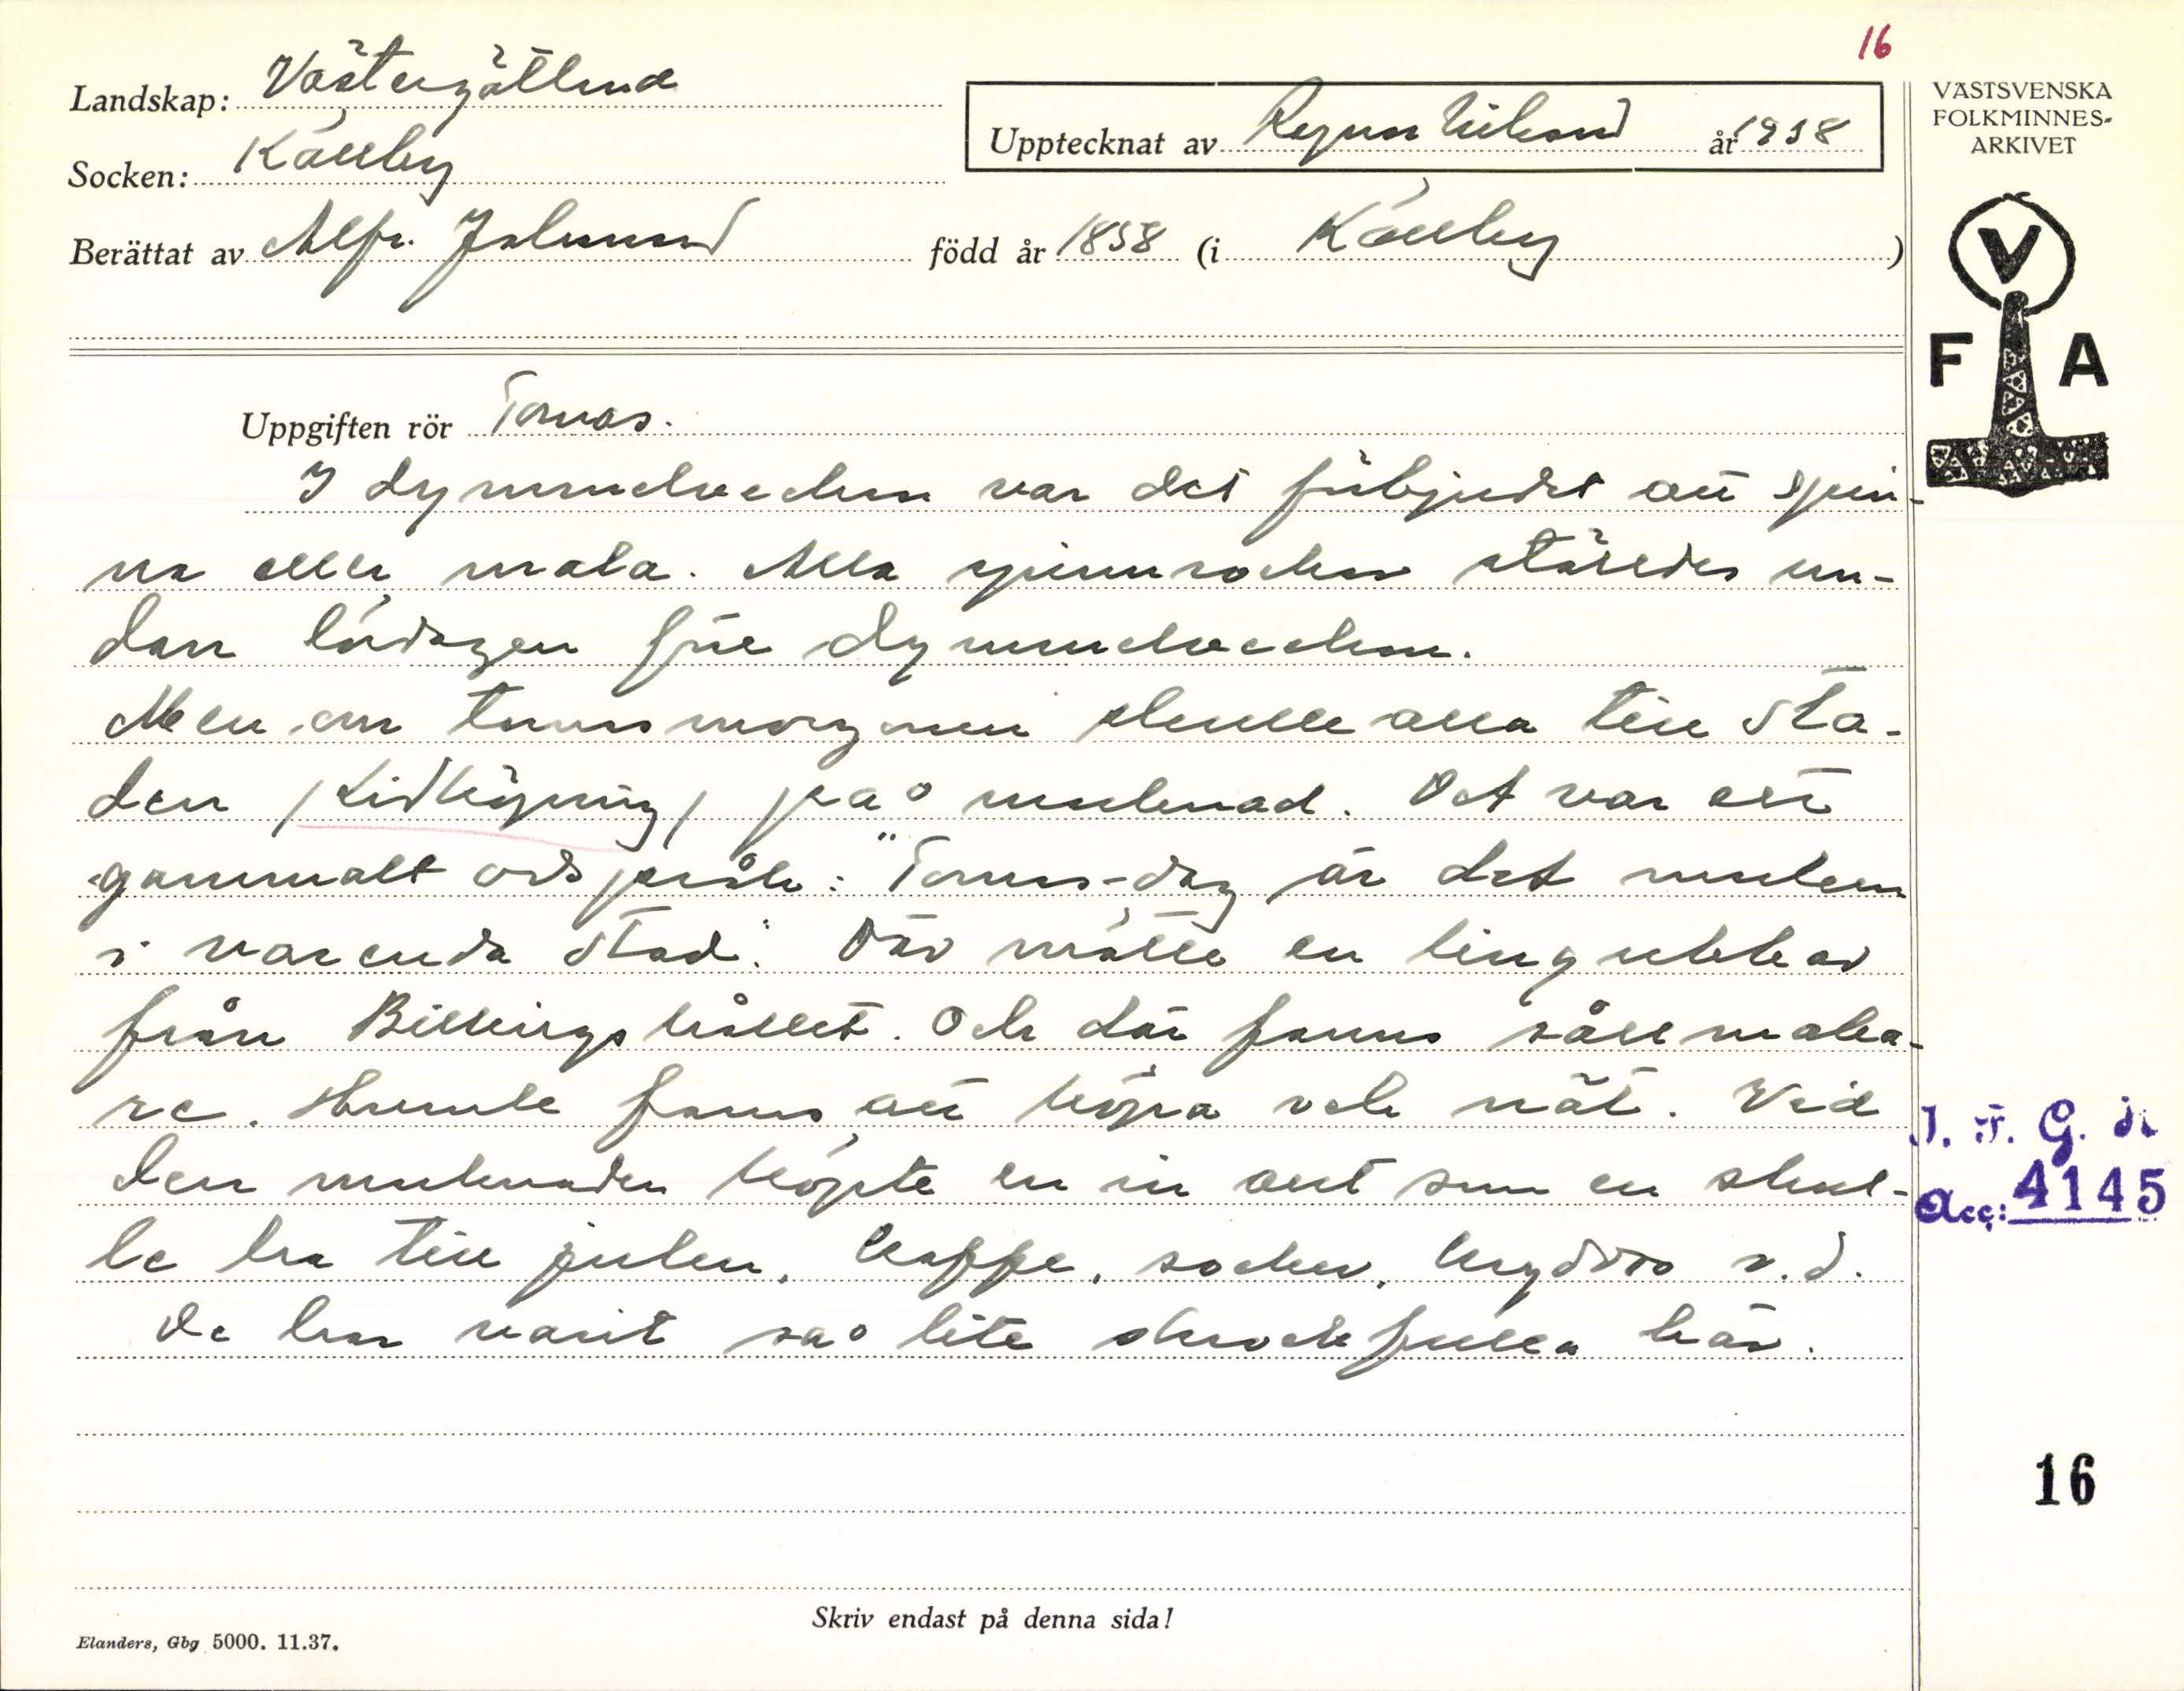 16
Landskap: Västergötland
Upptecknat av Ragnar Nilsson år 1938
Socken: Källby
Berättat av Alfr. Johansson född år 1858 (i Källby)
VÄSTSVENSKA
FOLKMINNES-
ARKIVET
V
F A
Uppgiften rör Tomas.
I dymmelveckan var det förbjudet att spin-
na eller mala. Alla spinnrockar ställdes un-
dan lördagen före dymmelveckan.
Men om tomasmorgonen skulle alla till sta-
den /Lidköping/ på marknad. Det var ett
gammalt ordspråk: "Tomas-dag är det marken
i varenda stad". Där mötte en lingubbar
från Billingshållet. Och där fanns sållmaka-
re. Humle fanns att köpa och nät. Vid
den marknaden köpte en in allt som en skul-
le ha till julen, kaffe, socker, kryddor o.d.
De har varit så lite skrockfulla här.
I. F. G. nr
Acc: 4145
16
Skriv endast på denna sida!
Elanders, Gbg 5000. 11.37.